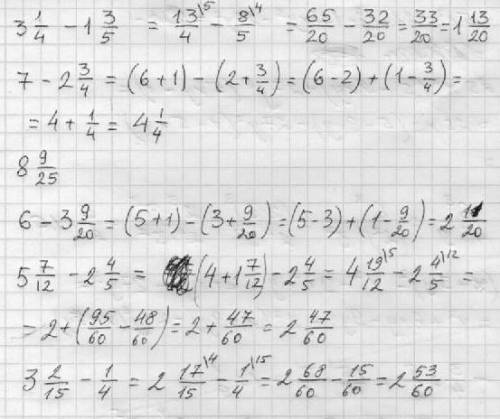 3 1/4 - 1 3/5 = 13\5/4 - 8\4/5 = 65/20 - 32/20 = 33/20 = 1 13/20
7 - 2 3/4 = (6+1) - (2+3/4) = (6-2) + (1-3/4) =
= 4 + 1/4 = 4 1/4
8 9/25
6 - 3 9/20 = (5+1) - (3+9/20) = (5-3) + (1-9/20) = 2 11/20
5 7/12 - 2 4/5 = (4+1 7/12) - 2 4/5 = 4 19\5/12 - 2 4\12/5 =
= 2 + (95/60 - 48/60) = 2 + 47/60 = 2 47/60
3 2/15 - 1/4 = 2 17\4/15 - 1\15/4 = 2 68/60 - 15/60 = 2 53/60